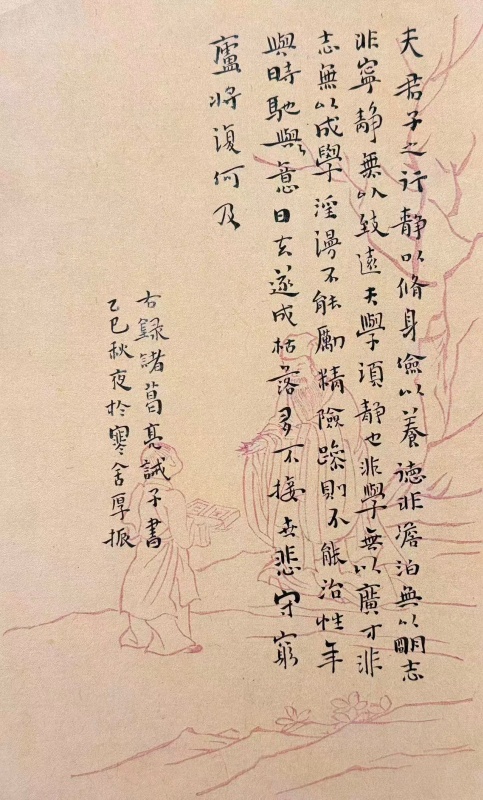 夫君子之行静以脩身儉以養德非澹泊無以明志
非寧静無以致遠夫學須静也非學無以廣才非
志無以成學淫漫不能勵精險躁則不能治性年
與時馳與意日去遂成枯落多不接世悲守窮
廬將復何及
右録諸葛亮誡子書
乙巳秋夜於寒舍厚振